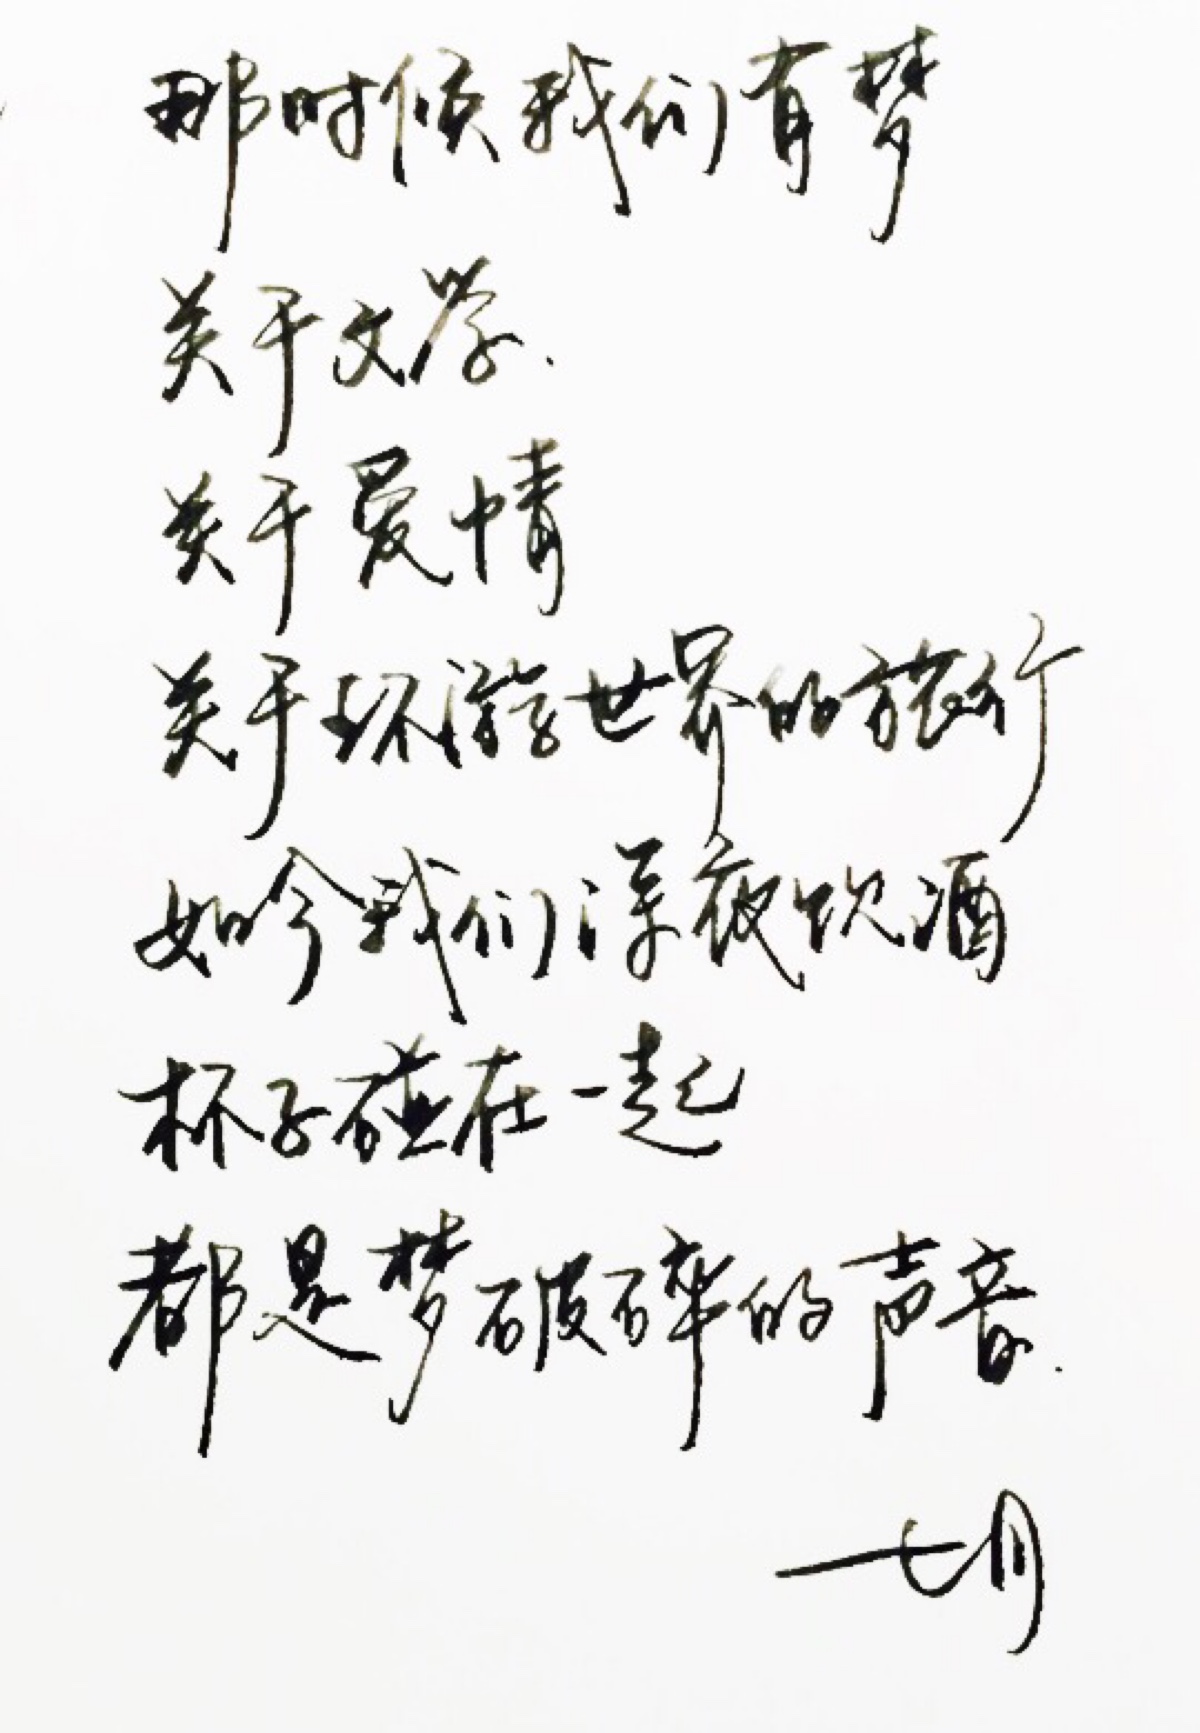 那时候我们有梦
关于文学.
关于爱情
关于环游世界的旅行
如今我们深夜饮酒
杯子碰在一起
都是梦破碎的声音.
七月